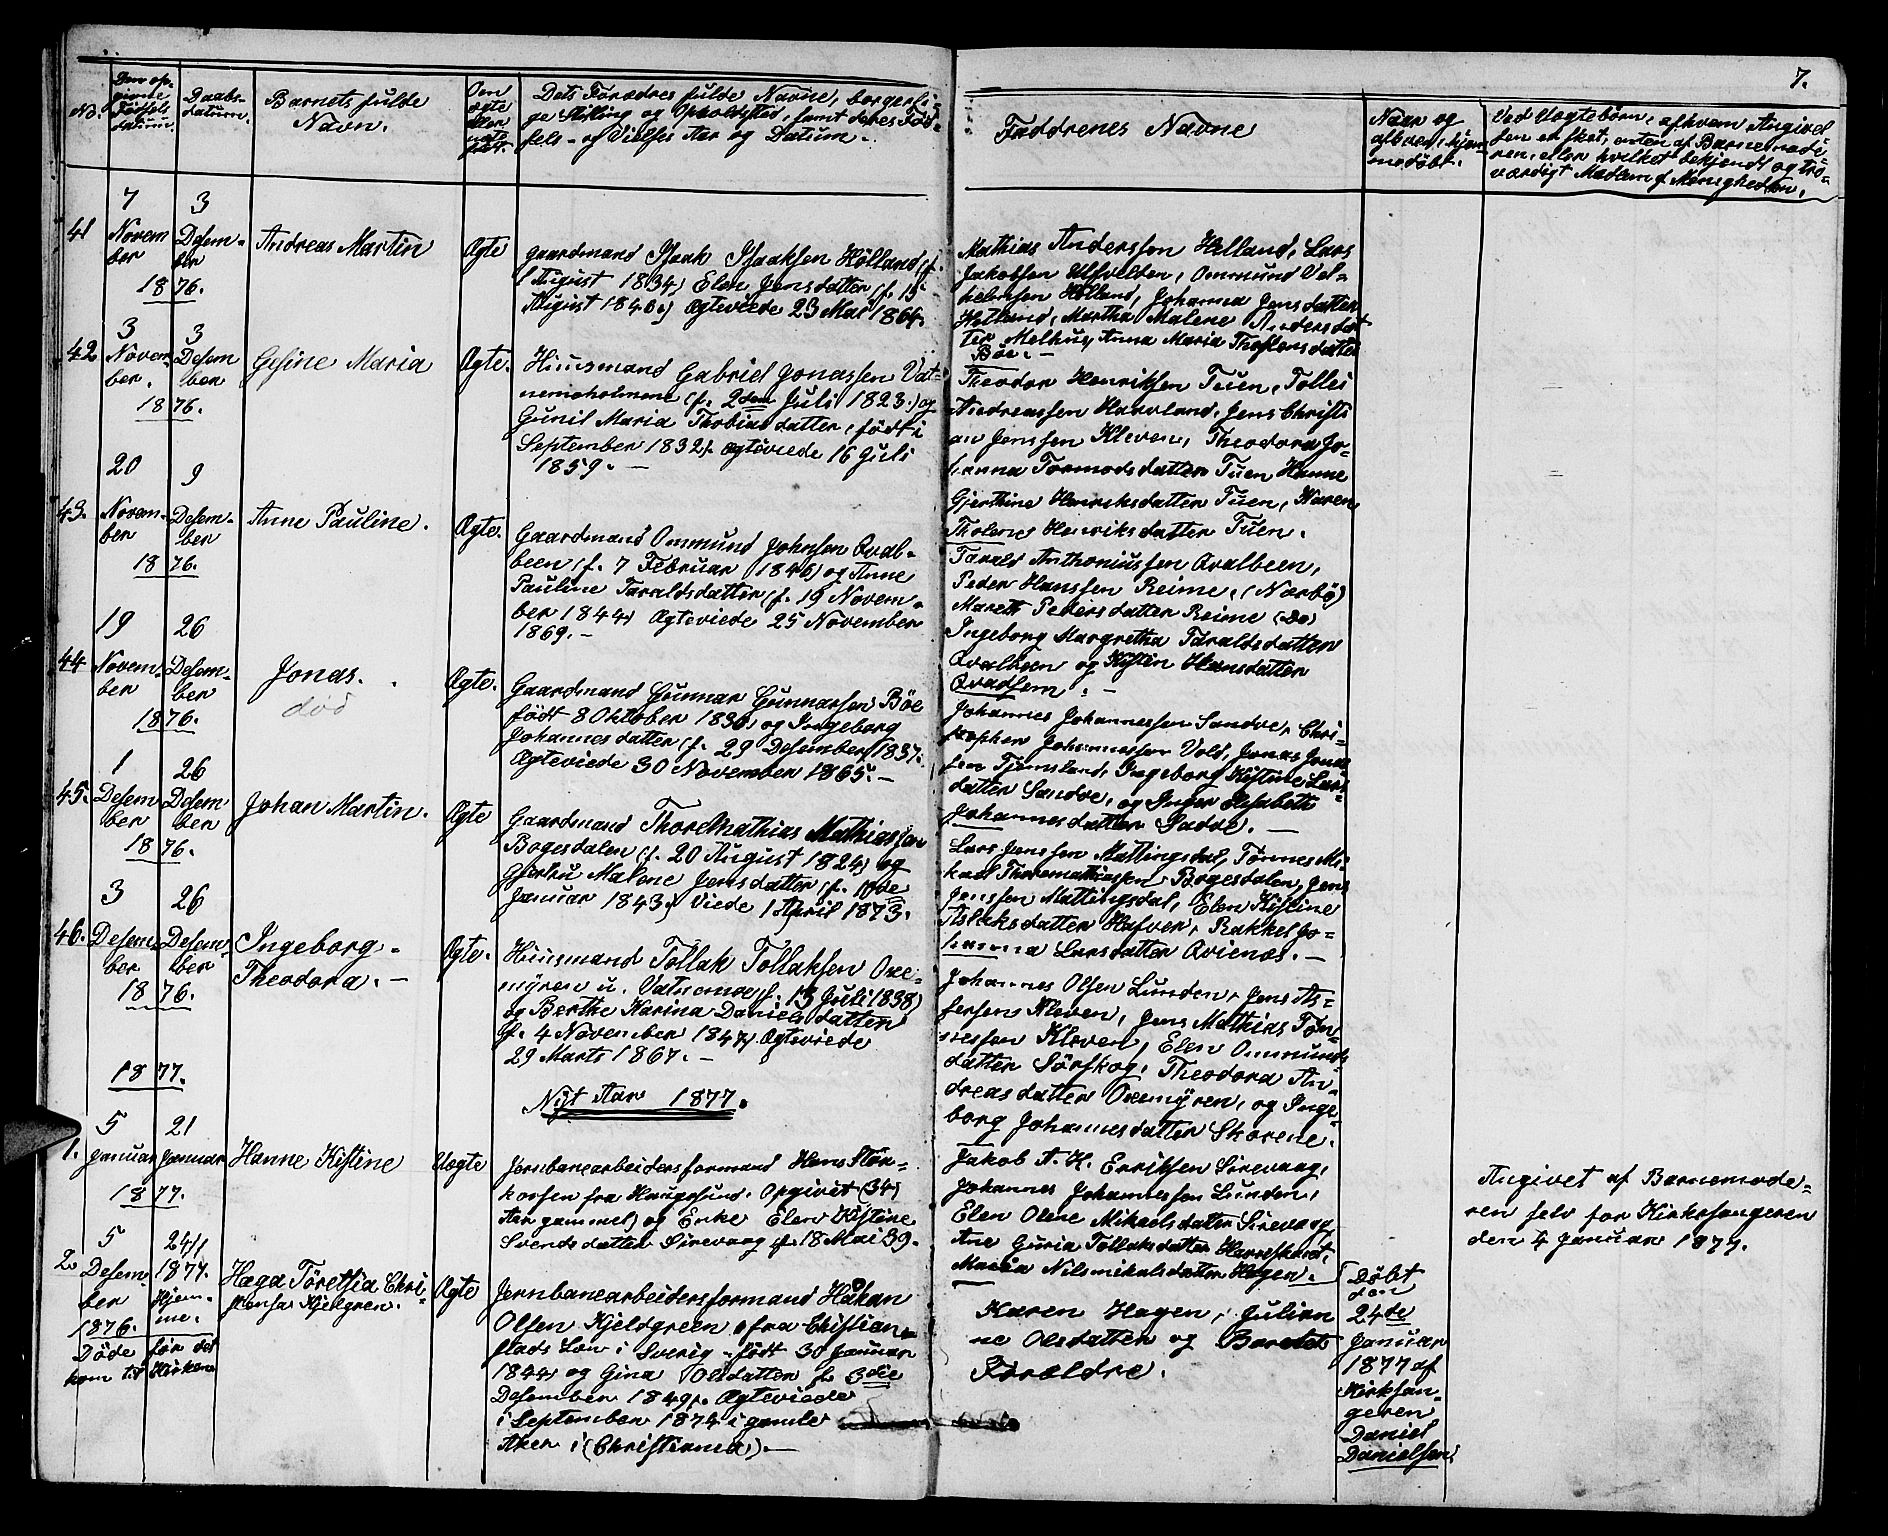 7.
No.
Den op-
givne
Fødsels
datum.
Daabs-
datum.
Barnets fulde
Navn.
Om
ægte
eller
uægte
født.
Dets Forældres fulde Navne, borgerli-
ge Stilling og Opholdssted, samt deres Fød-
sels- og Vielses Aar og Datum.
Faddrenes Navne
Naar og
af hvem hjem-
medøbt.
Ved Uægtebørn, af hvem Angivel
sen er sket, enten af Barnemode-
ren, eller hvilket bekjendt og tro-
værdigt Medlem af Menigheden.
41
7
Novem
ber
1876.
3
Desem-
ber
Andreas Martin
Ægte
gaardmand Isaak Isaaksen Hølland, (f.
1 August 1834) Elen Jensdatter (f. 15
August 1840.) Ægteviede 23 Mai 1864.
Mathias Anderssen Helland, Lars
Jakobsen Ulfvelten, Ommund Vel-
helmsen Hølland, Johanna Jensdatter
Hetland, Martha Malene Andersdat
ter Melhus, Anna Maria Thostensdatter
Böe. -
42
3
Novem-
ber.
1876.
3
Desem
ber
Gesine Maria
Ægte.
Huusmand Gabriel Jonassen Vat-
nemoholmene (f. 2den Juli 1823.) og
Gunil Maria Thobiasdatter, født i
September 1832. Ægteviede 16 Juli
1859. -
Theodor Henriksen Tuen, Tolles
Andreassen Haavland, Jens Christi
an Jenssen Kleven, Theodora Jo-
hanna Tormodsdatter Tuen Hanne
Gjerthine Henriksdatter Tuen, Karen
Tholene Henriksdatter Tuen.
43.
20
Novem-
ber
1876.
9
Desem-
ber
Anne Pauline.
Ægte.
Gaardmand Ommund Johnsen Qval-
been (f. 7 Februar 1846) og Anne
Pauline Taraldsdatter (f. 19 Novem-
ber 1844) Ægteviede 25 November
1869. -
Tarald Anthoniussen Qvalbeen,
Peder Hanssen Reime, (Nærbø)
Mareth Pedersdatter Reime (Do)
Ingeborg Margretha Taraldsdatter
Qvalbeen og Kistin Hansdatter
Qvadsem. -
44
19
Novem-
ber
1876.
26
Desem-
ber
Jonas.
død
Ægte.
Gaardmand Gunnar Gunnarsen Böe
født 8 Oktober 1830, og Ingeborg
Johannesdatter (f. 29 Desember 1837.
Ægteviede 30 November 1865. -
Johannes Johannessen Sandve, Chri-
stopher Johannessen Vold, Jonas Jona
sen Tjemsland, Ingeborg Kistine Lars-
datter Sandve, og Inger Elisabeth
Johannesdatter Sadve. -
45.
1
Desem
ber
1876.
26
Desem
ber
Johan Martin.
Ægte
Gaardmand Thore Mathias Mathiassen
Bogesdalen (f. 20 August 1824) og
Gjertru Malene Jensdatter (f. 10de
Januar 1843.) Viede 1 April 1873.
Lars Jenssen Mattingsdal, Tønnes Mi-
kael Thoremathiassen Bogesdalen, Jens
Jenssen Mattingsdal, Elen Kistine
Aslaksdatter Hafver, Rakkel Jo-
hanna Larsdatter Qvienæs. -
46.
3
Desem-
ber
1876.
26
Desem-
ber
Ingeborg-
Theodora. -
Ægte.
Huusmand Tollak Tollaksen Oxe-
myren u. Vatnemoe (f. 13 Juli 1838)
og Berthe Karina Danielsdatter
(f. 4 November 1847) Ægteviede
29 Marts 1867. -
Johannes Olsen Lunden, Jens As-
sersens Kleven, Jens Mathias Tøn-
nessen Kleven, Elen Ommunds
datter Sørskog, Theodora An-
dreasdatter Oxemyren, og Inge-
borg Johannesdatter Skorene.
1877.
Nyt Aar 1877.
1.
5
Januar
1877.
21
Januar
Hanne Kistine
Uægte
Jernbanearbeidersformand Hans Stor-
korsen fra Haugesund. Opgivet (34)
Aar gammel) og Enke Elen Kistine
Svendsdatter Sirevaag (f. 18 Mai 39.
Jakob A. H. Erriksen Sirevaag,
Johannes Johannessen Lunden,
Elen Olene Mikaelsdatter Sirevaag
Ane Guria Tollaksdatter Harreskaret,
Maria Nilsmikalsdatter Hogen.
Angivet af Barnemode-
ren selv for Kirkesangeren
den 4 Januar 1877.
2.
5
Desem-
ber
1876.
24/1
1877.
Hjem-
me.
Døde før det
kom til Kirken
Hæga Töretsia Chri-
stensa Kjelgren.
Ægte
Jernbanearbeidersformand Håkan
Olsen Kjeldgreen, fra Christian-
stads Læn i Sverig - født 30 Januar
1844) og Gina Olsdatter (f. 3die
Desember 1849). Ægteviede
i September 1874 i gamle
Aker i (Christiania). -
Karen Hagen, Julian
ne Olsdatter og Barnets
Forældre.
Døbt
den
24de
Januar
1877 af
Kirksan-
geren
Daniel
Danielsen.